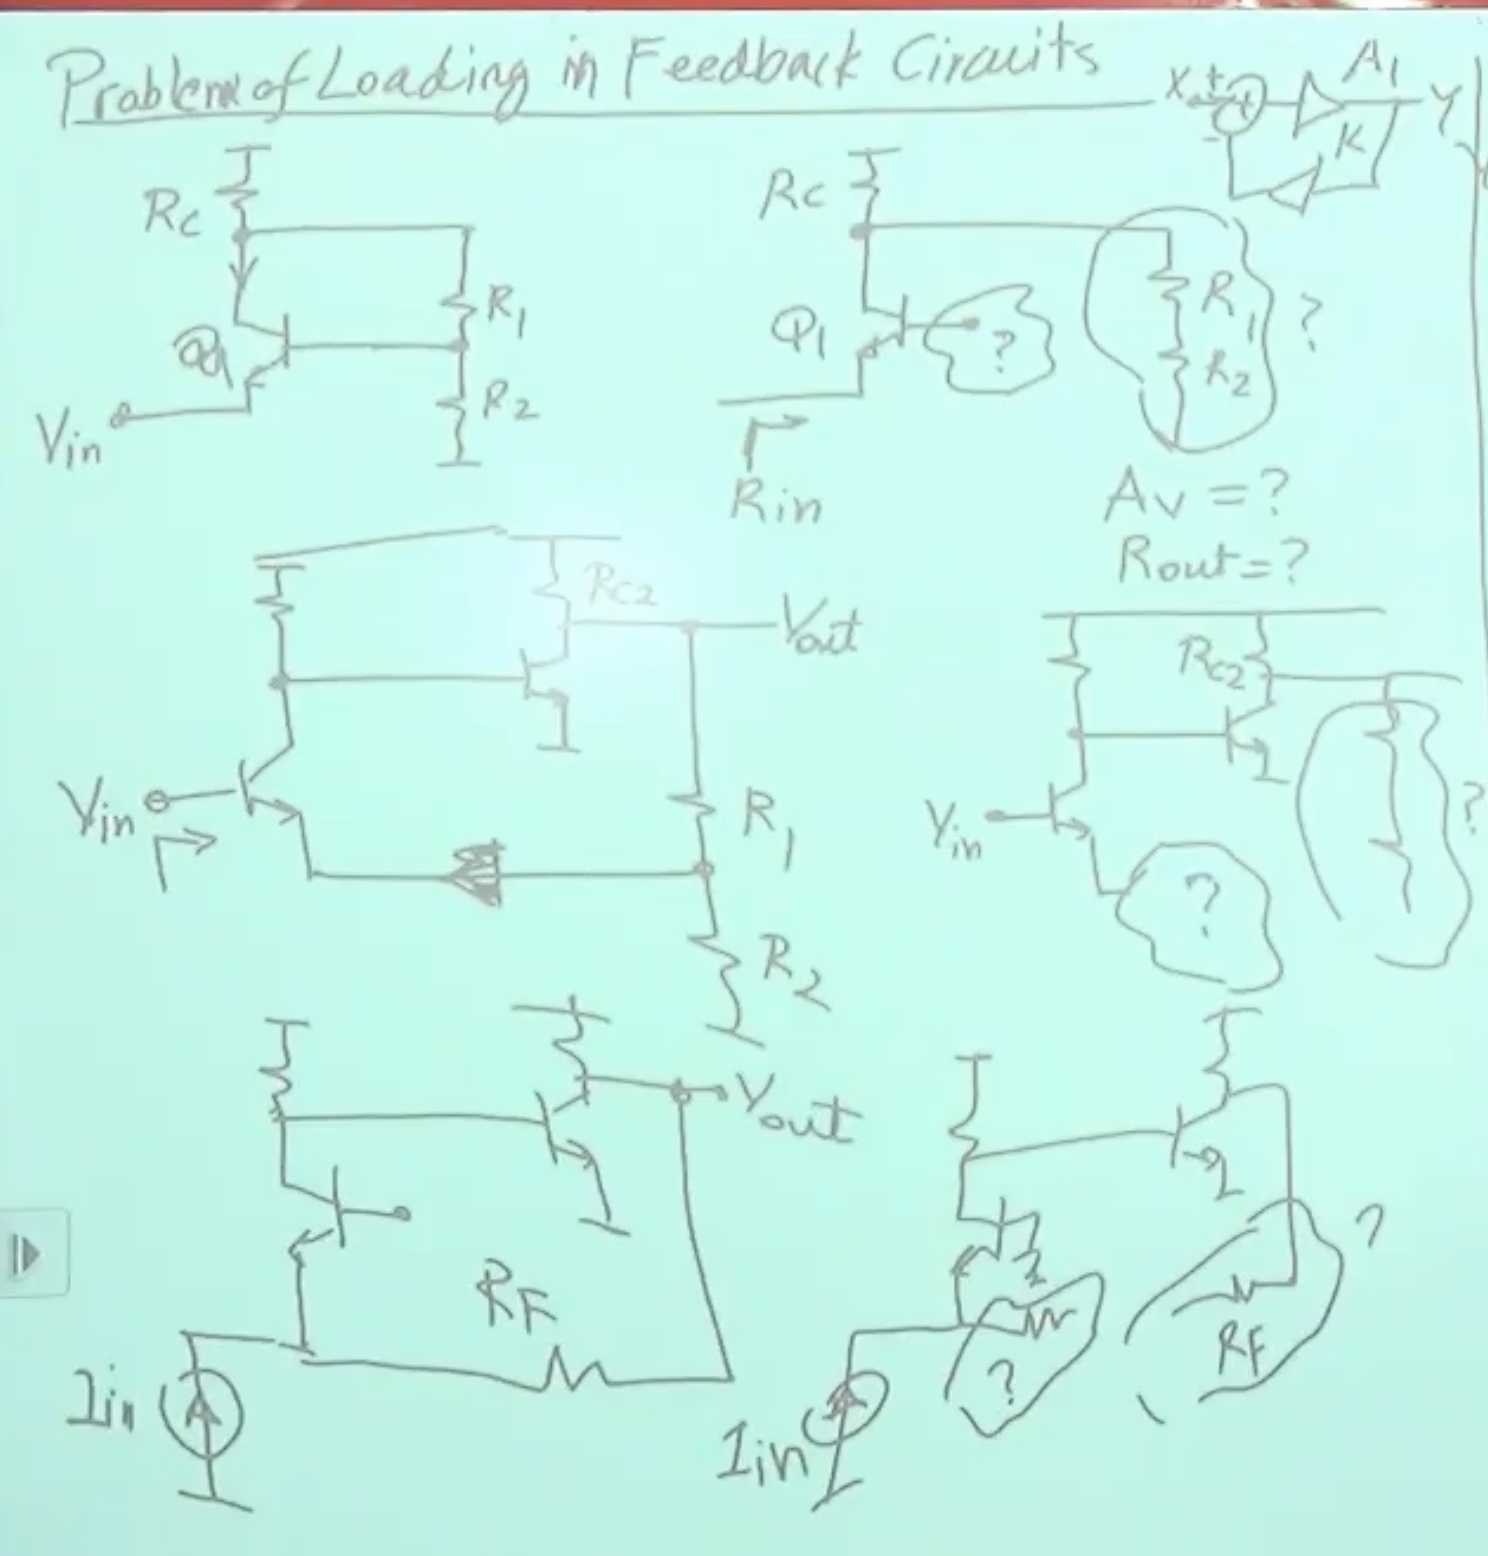 Problem of Loading in Feedback Circuits
X + + - A1 Y
K
Rc
R1
Q1
R2
Vin
Rc
Q1
?
R1
R2
?
Rin
Av = ?
Rout = ?
Rc2
Vout
Vin
R1
R2
Rc2
Vin
?
?
Vout
RF
Iin
?
?
RF
Iin